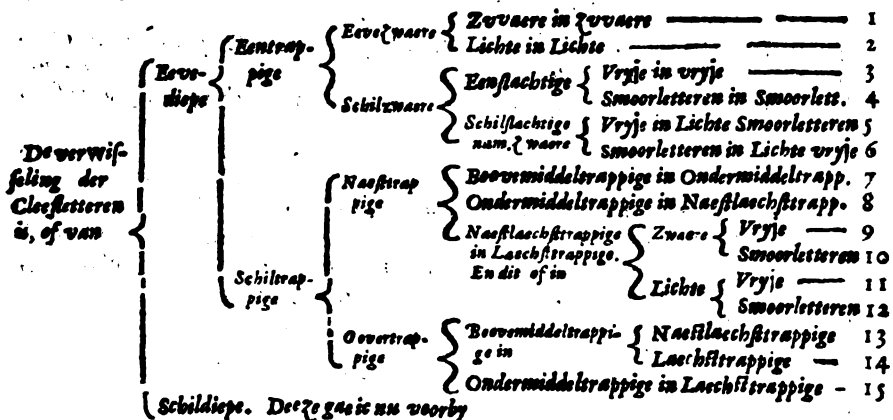 De verwiſſeling der Cleefletteren is, of van
Eevediepe
Eentrappige
Eevezwaere
Zwaere in Zwaere 1
Lichte in Lichte 2
Schilzwaere
Eenſlachtige
Vryje in vryje 3
Smoorletteren in Smoorlett. 4
Schilſlachtige nam. zwaere
Vryje in Lichte Smoorletteren 5
Smoorletteren in Lichte vryje 6
Schiltrappige
Naeſttrappige
Boevemiddeltrappige in Ondermiddeltrapp. 7
Ondermiddeltrappige in Naeſtlaechſttrapp. 8
Naeſtlaechſttrappige in Laechſttrappige. En dit of in
Zwaere
Vryje 9
Smoorletteren 10
Lichte
Vryje 11
Smoorletteren 12
Oovertrappige
Boevemiddeltrappige in
Naeſtlaechſttrappige 13
Laechſttrappige 14
Ondermiddeltrappige in Laechſttrappige - 15
Schildiepe. Deeze gae ic nu voorby